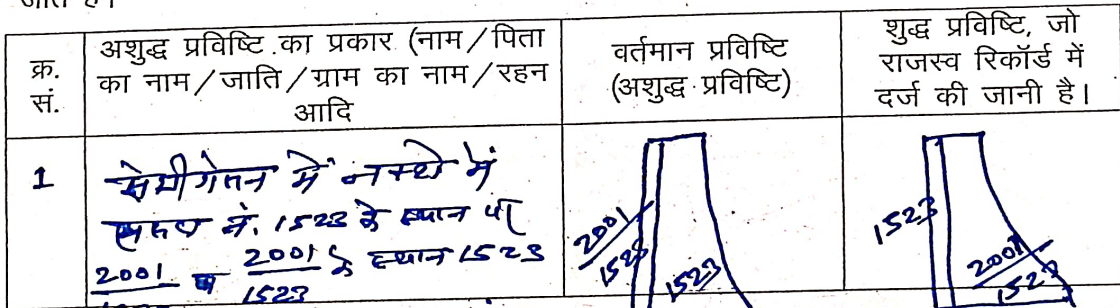 क्र.
सं.
अशुद्ध प्रविष्टि का प्रकार (नाम/पिता
का नाम/जाति/ग्राम का नाम/रहन
आदि
वर्तमान प्रविष्टि
(अशुद्ध प्रविष्टि)
शुद्ध प्रविष्टि, जो
राजस्व रिकॉर्ड में
दर्ज की जानी है।
1
में नक्शे में
नं. 1523 के स्थान पर
2001 व 2001/1523 के स्थान 1523
2001/1523
1523
1523
2001/1523